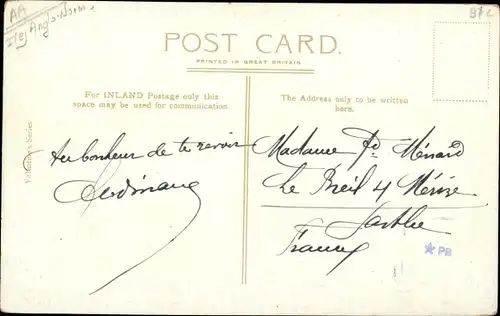 AA
Iles Anglo-Norm.
97c
POST CARD.
PRINTED IN GREAT BRITAIN
For INLAND Postage only this
space may be used for communication.
The Address only to be written
here.
Valentine's Series
Au bonheur de te revoir
Ferdinand
Madame Fd Ménard
Le Breil s/ Mérize
Sarthe
France
★ PB